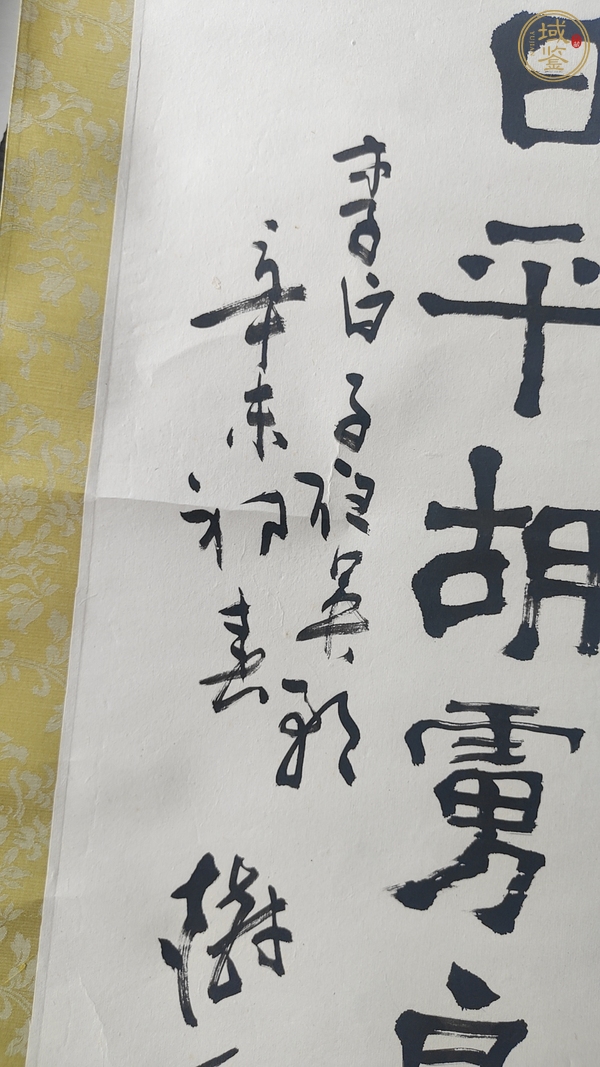 日平胡虜良
李白子夜吴歌
辛未初春
域鉴